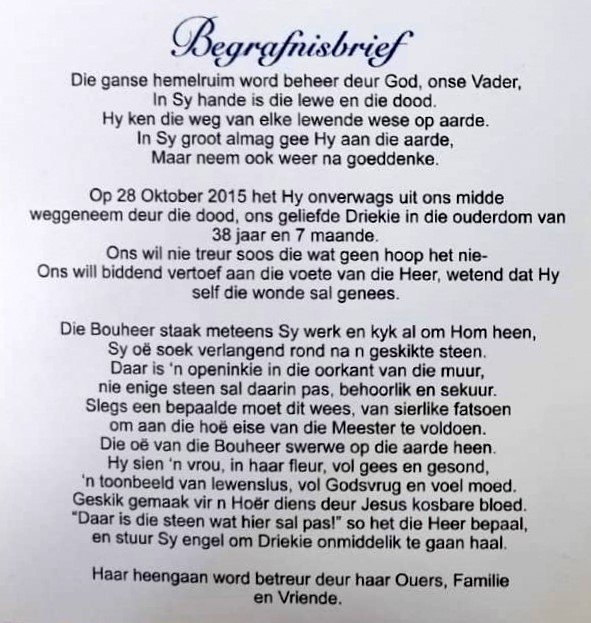 Begrafnisbrief
Die ganse hemelruim word beheer deur God, onse Vader,
In Sy hande is die lewe en die dood.
Hy ken die weg van elke lewende wese op aarde.
In Sy groot almag gee Hy aan die aarde,
Maar neem ook weer na goeddenke.
Op 28 Oktober 2015 het Hy onverwags uit ons midde
weggeneem deur die dood, ons geliefde Driekie in die ouderdom van
38 jaar en 7 maande.
Ons wil nie treur soos die wat geen hoop het nie-
Ons will biddend vertoef aan die voete van die Heer, wetend dat Hy
self die wonde sal genees.
Die Bouheer staak meteens Sy werk en kyk al om Hom heen,
Sy oë soek verlangend rond na n geskikte steen.
Daar is 'n openinkie in die oorkant van die muur,
nie enige steen sal daarin pas, behoorlik en sekuur.
Slegs een bepaalde moet dit wees, van sierlike fatsoen
om aan die hoë eise van die Meester te voldoen.
Die oë van die Bouheer swerwe op die aarde heen.
Hy sien 'n vrou, in haar fleur, vol gees en gesond,
'n toonbeeld van lewenslus, vol Godsvrug en voel moed.
Geskik gemaak vir n Hoër diens deur Jesus kosbare bloed.
"Daar is die steen wat hier sal pas!" so het die Heer bepaal,
en stuur Sy engel om Driekie onmiddelik te gaan haal.
Haar heengaan word betreur deur haar Ouers, Familie
en Vriende.